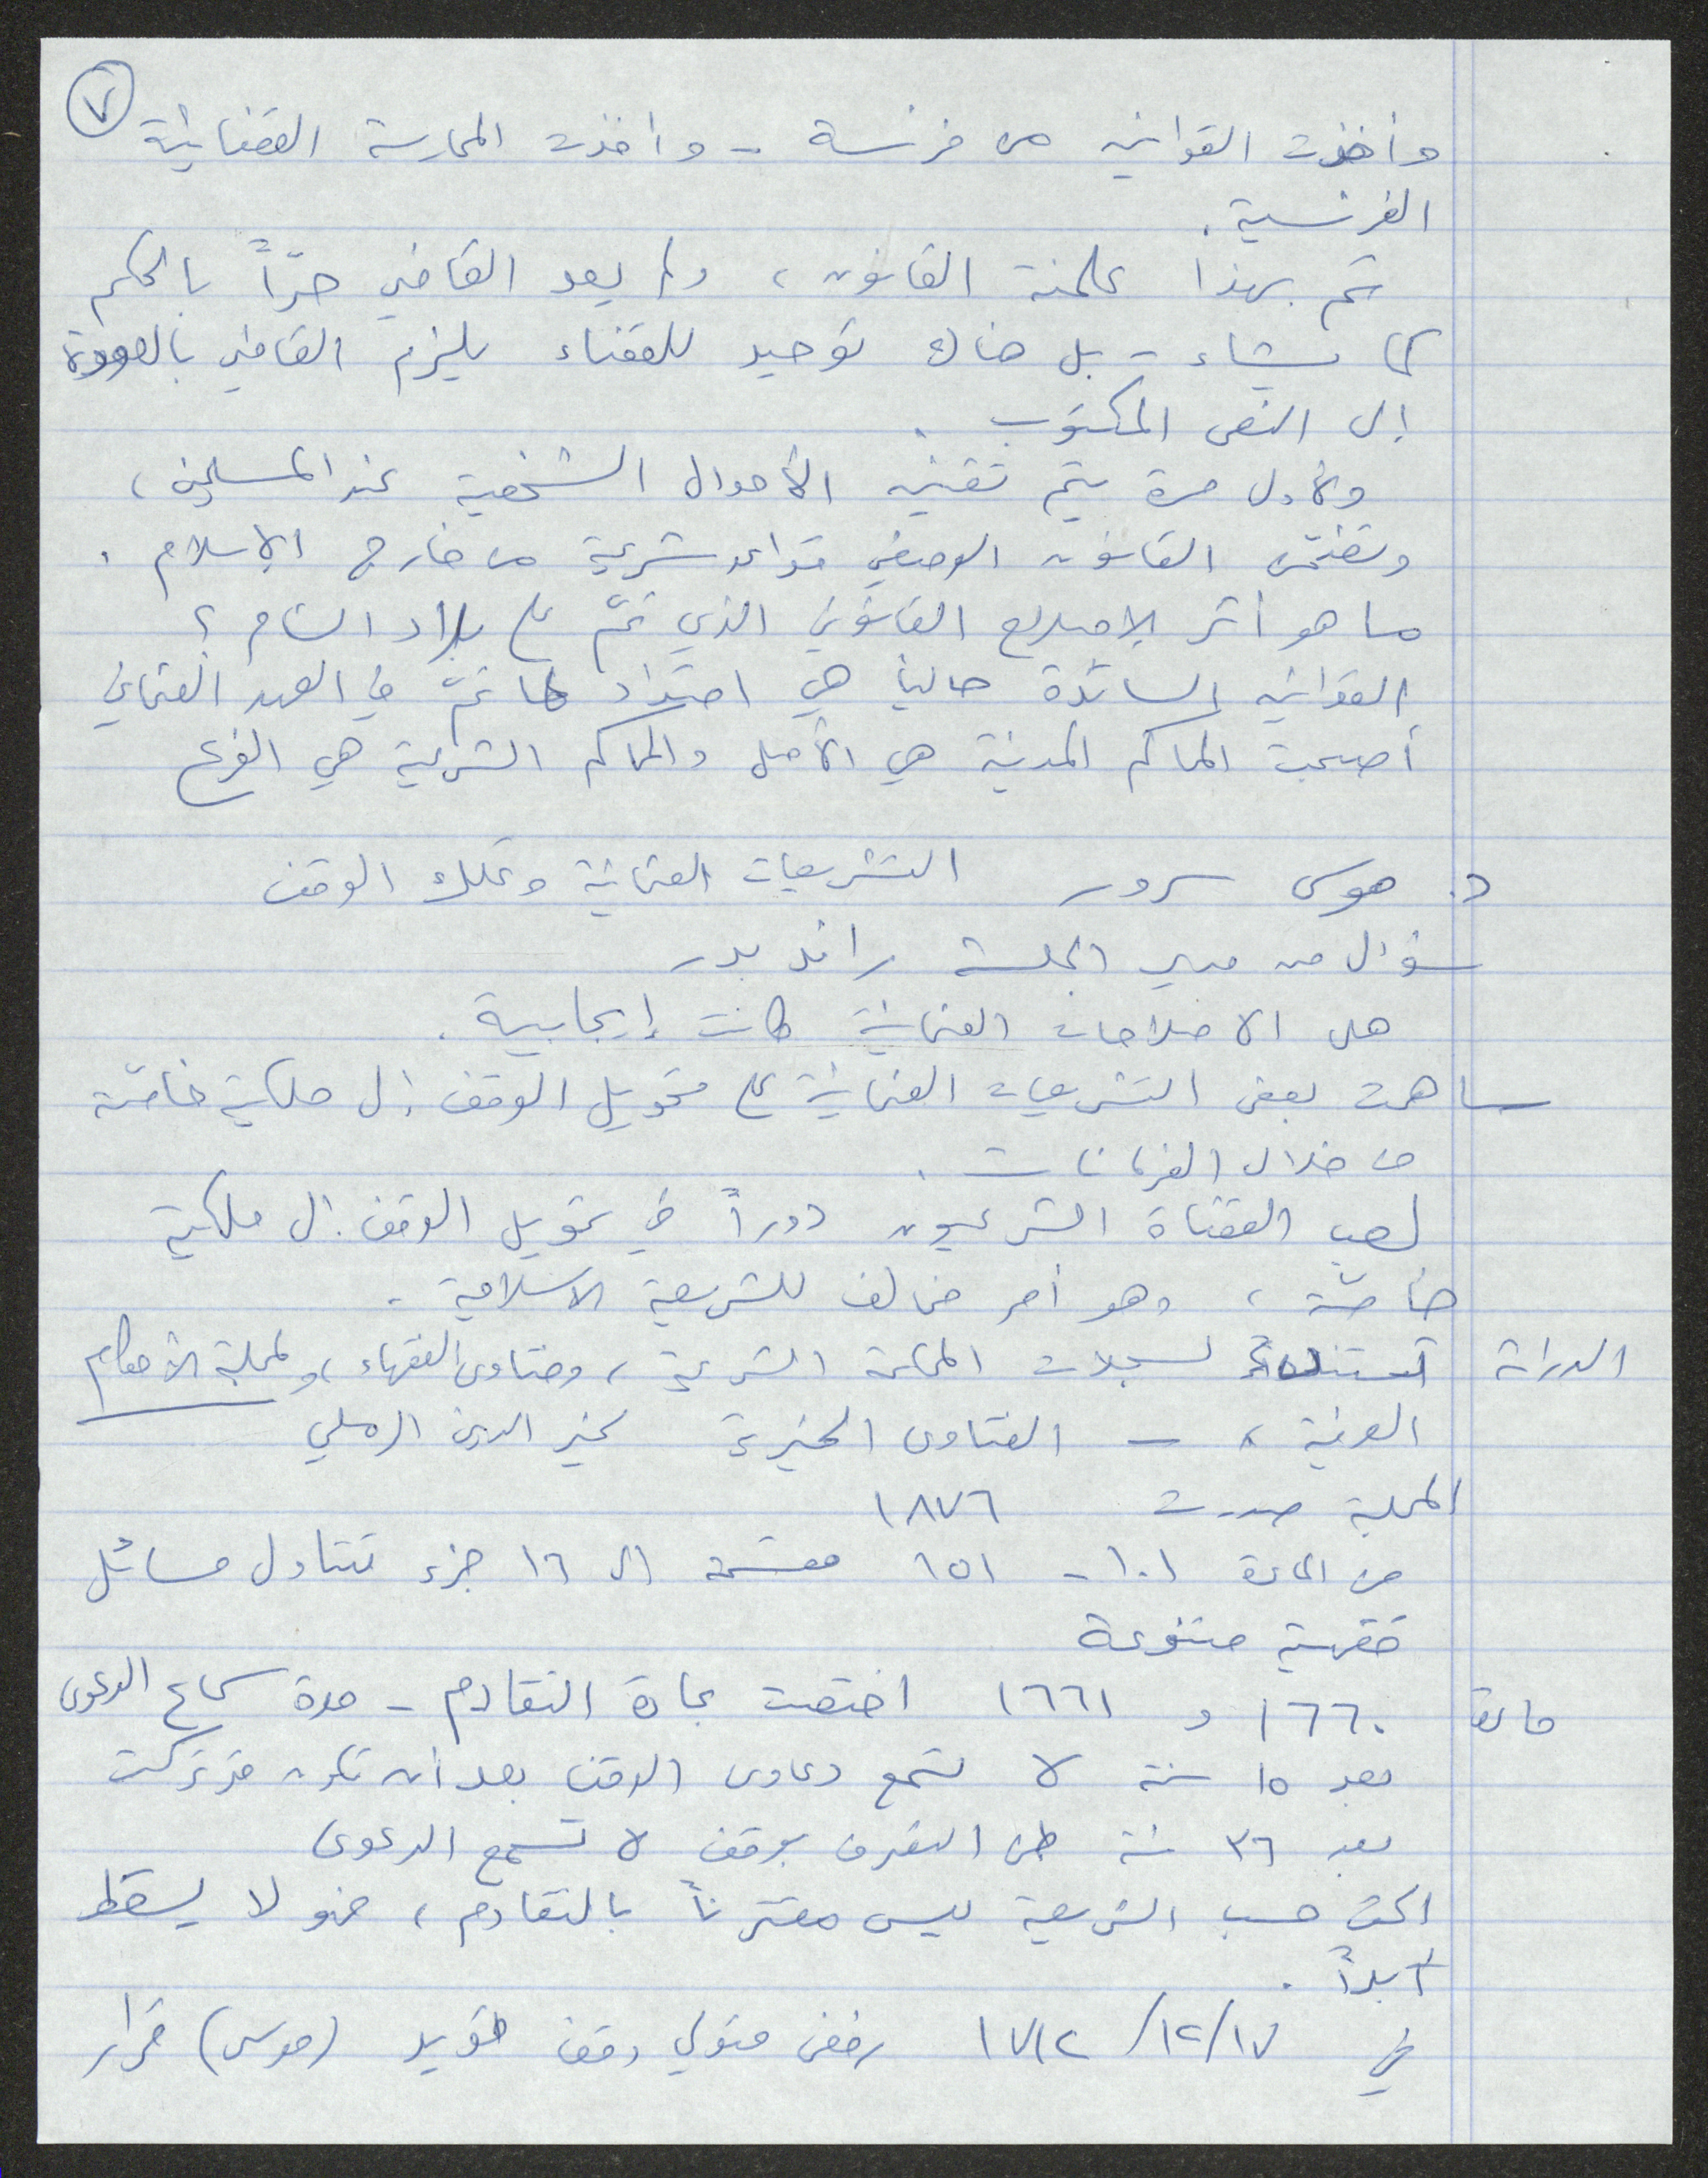 ٧
وأخذت القوانين من فرنسة - وأخذت الممارسة القضائية
الفرنسية.
تم بهذا علمنة القانون، ولم يعد القاضي حرّاً بالحكم
كما يشاء - بل هناك توحيد للقضاء يلزم القاضي بالعودة
إلى النص المكتوب.
ولأول مرة يتم تقنين الأحوال الشخصية عند المسلمين،
وتضمّن القانون الوضعي قواعد شرعية من خارج الإسلام.
ما هو أثر الإصلاح القانوني الذي تمّ على بلاد الشام؟
القوانين السائدة حالياً هي امتداد لما تمّ في العهد العثماني
أصبحت المحاكم المدنية هي الأصل والمحاكم الشرعية هي الفرع
د. موسى سرور التشريعات العثمانية وتملك الوقف
سؤال من مدير الجلسة رائد بدر
هل الاصلاحات العثمانية كانت إيجابية.
ساهمت بعض التشريعات العثمانية على تحويل الوقف إلى ملكية خاصّة
من خلال الفرمانات.
لعب القضاة الشرعيون دوراً في تحويل الوقف إلى ملكية
خاصّة، وهو أمر مخالف للشريعة الاسلامية.
الدراسة تستند لسجلات المحكمة الشرعية، وفتاوى الفقهاء، ولمجلة الأحكام
العدلية، - الفتاوى الخيرية لخير الدين الرملي
المجلة صدرت ١٨٧٦
من المادة ١٠١ - ١٥١ مقسّمة الى ١٦ جزء تتناول مسائل
فقهية متنوعة
مادة ١٦٦٠ و ١٦٦١ اختصت بمادة التقادم - مدة سماع الدعوى
بعد ١٥ سنة لا تسمع دعاوى الوقف بعد أن تكون قد تركت
بعد ٣٦ سنة من التصرف بوقف لا تسمع الدعوى
الحق حسب الشريعة ليس مقترناً بالتقادم، فهو لا يسقط
أبداً.
في ١٧/١٢/١٧١٢ رفض متولي وقف (موسى) قرار